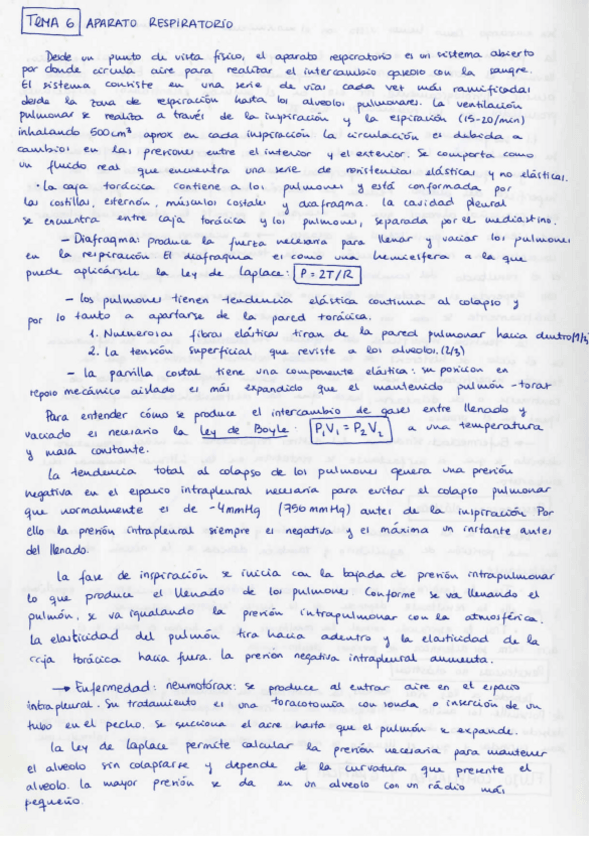 TEMA 6 APARATO RESPIRATORIO
Desde un punto de vista físico, el aparato respiratorio es un sistema abierto
por donde circula aire para realizar el intercambio gaseoso con la sangre.
El sistema consiste en una serie de vías cada vez más ramificadas
desde la zona de espiración hasta los alveolos pulmonares. La ventilación
pulmonar se realiza a través de la inspiración y la espiración (15-20/min)
inhalando 500cm³ aprox en cada inspiración la circulación es debida a
cambios en las presiones entre el interior y el exterior. Se comporta como
un fluido real que encuentra una serie de resistencias elásticas y no elásticas.
· La caja torácica contiene a los pulmones y está conformada por
las costillas, esternón, músculos costales y diafragma. La cavidad pleural
se encuentra entre caja torácica y los pulmones, separada por el mediastino.
- Diafragma: produce la fuerza necesaria para llenar y vaciar los pulmones
en la respiración. El diafragma es como una hemiesfera a la que
puede aplicársele la ley de Laplace: P = 2T/R
- los pulmones tienen tendencia elástica continua al colapso y
por lo tanto a apartarse de la pared torácica.
1. Numerosas fibras elásticas tiran de la pared pulmonar hacia dentro (1/3)
2. La tensión superficial que reviste a los alveolos. (2/3)
- la parrilla costal tiene una componente elástica: su posición en
reposo mecánico aislado es más expandido que el mantenido pulmón-torax
Para entender cómo se produce el intercambio de gases entre llenado y
vaciado es necesario la Ley de Boyle: P₁V₁ = P₂V₂ a una temperatura
y masa constante.
La tendencia total al colapso de los pulmones genera una presión
negativa en el espacio intrapleural necesaria para evitar el colapso pulmonar
que normalmente es de -4mmHg (756 mmHg) antes de la inspiración. Por
ello la presión intrapleural siempre es negativa y es máxima un instante antes
del llenado.
La fase de inspiración se inicia con la bajada de presión intrapulmonar
lo que produce el llenado de los pulmones. Conforme se va llenando el
pulmón, se va igualando la presión intrapulmonar con la atmosférica.
La elasticidad del pulmón tira hacia adentro y la elasticidad de la
caja torácica hacia fuera. La presión negativa intrapleural aumenta.
→ Enfermedad: neumotórax: se produce al entrar aire en el espacio
intrapleural. Su tratamiento es una toracotomía con sonda o inserción de un
tubo en el pecho. Se succiona el aire hasta que el pulmón se expande.
La ley de Laplace permite calcular la presión necesaria para mantener
el alveolo sin colapsarse y depende de la curvatura que presente el
alveolo. La mayor presión se da en un alveolo con un rádio más
pequeño.